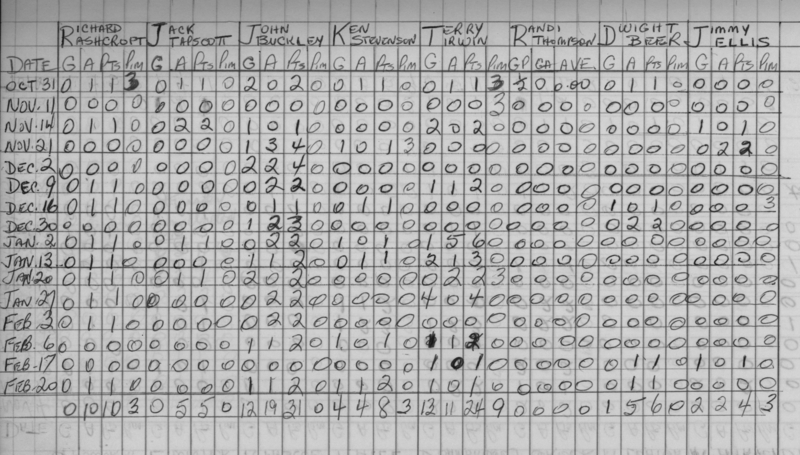 RICHARD RASHCROFT JACK TAPSCOTT JOHN BUCKLEY KEN STEVENSON TERRY IRWIN RANDI THOMPSON DWIGHT BEER JIMMY ELLIS
DATE G A Pts Pim G A Pts Pim G A Pts Pim G A Pts Pim G A Pts Pim GP GA AVE. G A Pts Pim G A Pts Pim
OCT.31 0 1 1 3 0 1 1 0 2 0 2 0 0 1 1 0 0 1 1 3 1/2 0 0.00 0 1 1 0 0 0 0 0
NOV.11 0 0 0 0 0 0 0 0 0 0 0 0 0 0 0 0 0 0 0 3 0 0 0 0 0 0 0 0 0 0 0 0
NOV.14 0 1 1 0 0 2 2 0 1 0 1 0 0 0 0 0 2 0 2 0 0 0 0 0 0 0 0 0 1 0 1 0
NOV.21 0 0 0 0 0 0 0 0 1 3 4 0 1 0 1 3 0 0 0 0 0 0 0 0 0 0 0 0 0 2 2 0
DEC.2 0 0 0 0 0 0 0 0 2 2 4 0 0 0 0 0 0 0 0 0 0 0 0 0 0 0 0 0 0 0 0 0
DEC.9 0 1 1 0 0 0 0 0 0 2 2 0 0 0 0 0 1 1 2 0 0 0 0 0 0 0 0 0 0 0 0 0
DEC.16 0 1 1 0 0 0 0 0 0 1 1 0 0 1 1 0 0 0 0 0 0 0 0 1 0 1 0 0 0 0 3
DEC.30 0 0 0 0 0 0 0 0 1 2 3 0 0 0 0 0 0 0 0 0 0 0 0 0 0 2 2 0 0 0 0 0
JAN.2 0 1 1 0 0 1 1 0 0 2 2 0 1 0 1 0 1 5 6 0 0 0 0 0 0 0 0 0 0 0 0 0
JAN.13 0 1 1 0 0 0 0 0 1 1 2 0 0 1 1 0 2 1 3 0 0 0 0 0 0 0 0 0 0 0 0 0
JAN.20 0 1 1 0 0 1 1 0 2 0 2 0 0 0 0 0 0 2 2 3 0 0 0 0 0 0 0 0 0 0 0 0
JAN.27 0 1 1 0 0 0 0 0 0 2 2 0 0 0 0 0 4 0 4 0 0 0 0 0 0 0 0 0 0 0 0 0
FEB.3 0 1 1 0 0 0 0 0 0 2 2 0 0 0 0 0 0 0 0 0 0 0 0 0 0 0 0 0 0 0 0 0
FEB.6 0 0 0 0 0 0 0 0 1 1 2 0 1 0 1 0 1 1 2 0 0 0 0 0 0 0 0 0 0 0 0
FEB.17 0 0 0 0 0 0 0 0 0 0 0 0 0 0 0 0 1 0 1 0 0 0 0 0 0 1 1 0 1 0 1 0
FEB.20 0 1 1 0 0 0 0 0 1 1 2 0 1 1 2 0 1 0 1 0 0 0 0 0 0 1 1 0 0 0 0 0
0 10 10 3 0 5 5 0 12 19 21 0 4 4 8 3 13 11 24 9 0 0 0 0 1 5 6 0 2 2 4 3